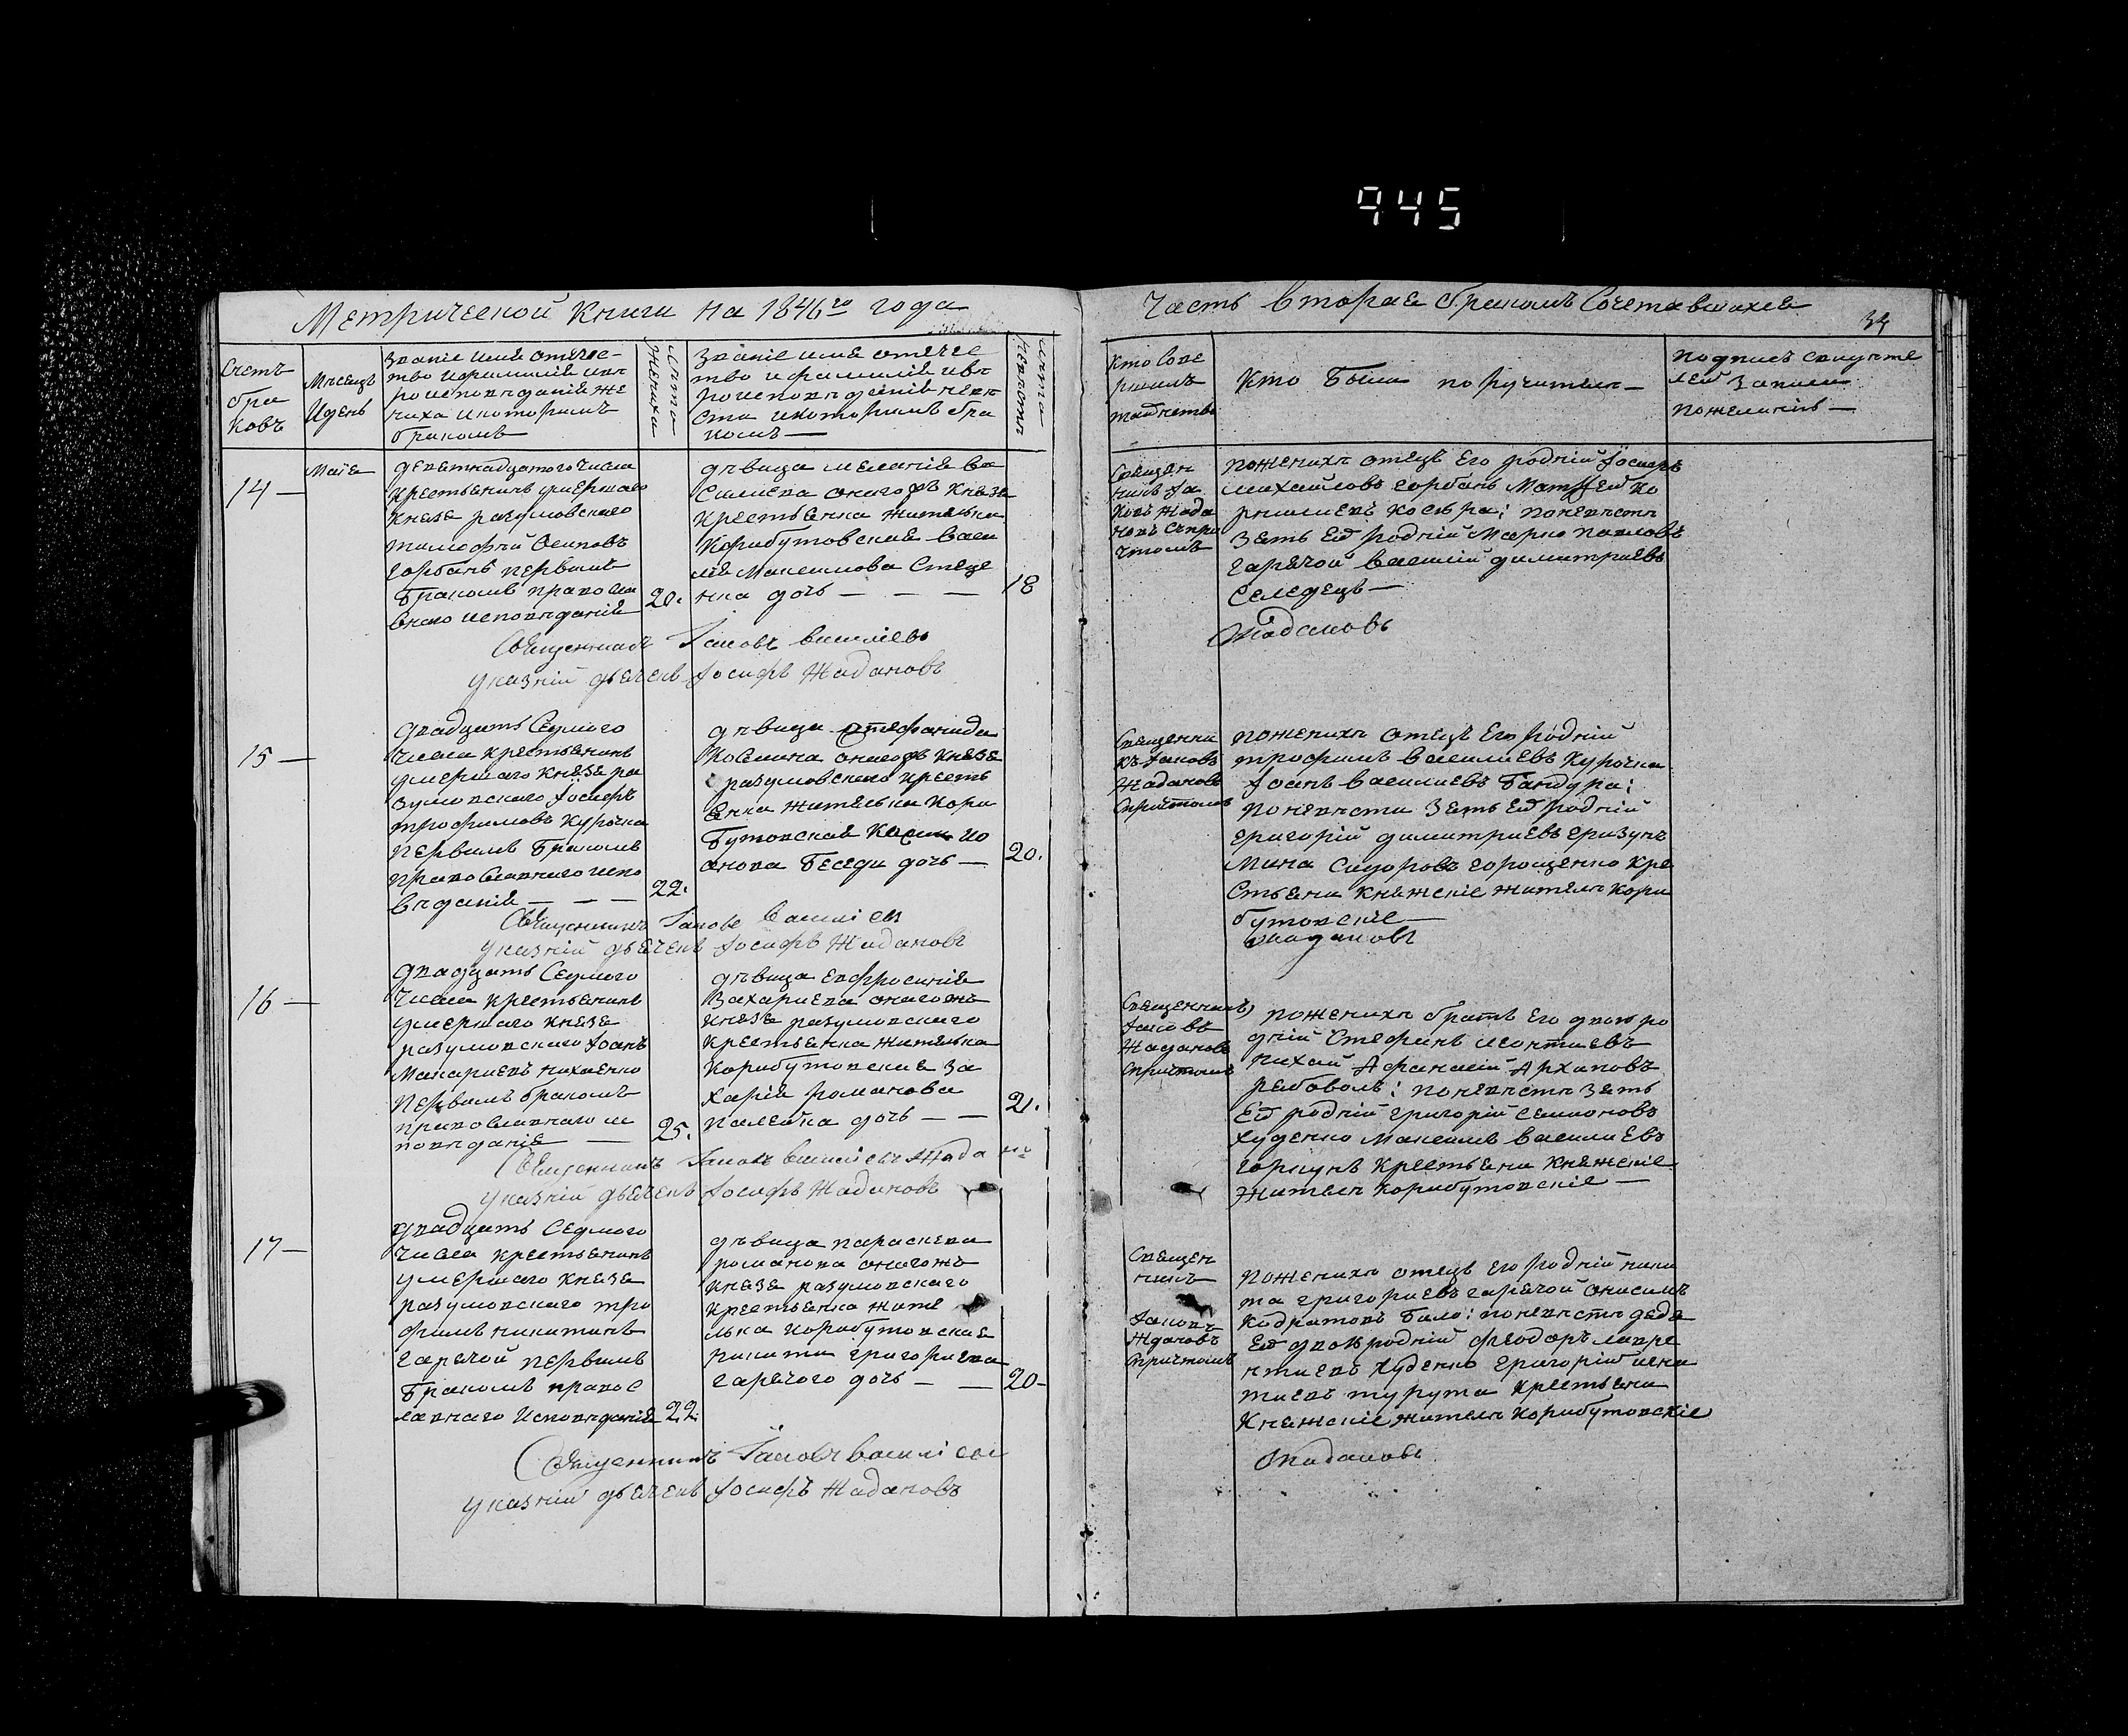 945
Метрической книги на 1846го года
Часть вторая о бракомъ сочетавшихся
34
Счетъ
бра
ковъ
Мѣсяцъ
И день
Званіе имя отчес-
тво и фамилія и вѣ
роисповѣданіе же
ниха и которымъ
бракомъ
Лѣта
жениха
Званіе имя отечес
тво и фамилія и вѣ
роисповѣданіе невѣ
сты и которымъ бра
комъ —
Лѣта
невѣсты
Кто сове
ршилъ
таинство
Кто были поручители —
Подпись свидѣте
лей записи
по желанію —
14 —
Маіе
девятнадцатого числа
крестьянинъ умершаго
князя разумовскаго
тимофѣй Осиповъ
горбань первымъ
бракомъ правосла
внаго исповѣданія
20.
дѣвица меланія Ва
силиева оногожъ князя
крестьянка жителька
Корибутовская Васи
лія Максимова Стеце
нка дочь — — —
18
Священ
никъ Іа
ковъ Жада
новъ съ при
чтомъ
по женихѣ отецъ Его родній Іосифъ
михайловъ горбань Матфей Ко
рнилиевъ косяра; по невѣсть
зять Ей родній Марко павловъ
гарячой василій димитриевъ
Селедецъ —
Жадановъ
Священникъ Іаковъ василіевъ
указній дьячекъ Іосифъ Жадановъ
15 —
двадцать Седмого
числа крестьянинъ
умершаго князя ра
зумовского Іосифъ
трофимовъ курочка
первымъ бракомъ
православнаго испо
вѣданія — — —
22.
дѣвица Стефанида
Космина оногожъ князя
разумовского кресть
янка жителька Кори
бутовская Косми Ио
анова Беседи дочь —
20.
Священни
къ Іаковъ
Жадановъ
съ причтомъ
по женихѣ отецъ Его родній
трофимъ василиевъ курочка
Іоанъ василиевъ бандура;
по невѣсти зять Ей родній
григорій димитриевъ гризунъ
Мина Сидоровъ горощенко кре
стьяни княжскіе жители кори
бутовскіе —
Жадановъ
Священникъ Іаковъ василіев
указній дьячекъ Іосифъ Жадановъ
16 —
двадцать Седмого
числа крестьянинъ
умершаго князя
разумовского Іоанъ
Макариевъ нихаенко
первымъ бракомъ
православнаго ис
повѣданія —
25.
дѣвица евфросинія
Захариева оногожъ
князя разумовскаго
крестьянка жителька
корибутовская За
харія романова
палейка дочь — —
21.
Священникъ
Іаковъ
Жадановъ
съ причтомъ
по женихѣ братъ Его двоюро
дній Стефанъ леонтиевъ
нихай Афанасій Архиповъ
рябоволъ; по невѣсть зять
Ей родній григорій семионовъ
худенко Максимъ василиевъ
горкунъ крестьяни княжскіе
жители корибутовскіе —
Священникъ Іаковъ василіевъ Жада
указній дьячекъ Іосифъ Жадановъ
17 —
двадцать седмого
числа крестьянинъ
умершаго князя
разумовского тро
фимъ никитинъ
гарячой первымъ
бракомъ правос
лавнаго исповѣданія
22.
дѣвица параскева
романова оногожъ
князя разумовского
крестьянка жите
лька корибутовская
никити григориева
гарячого дочь — —
20 —
Священ
никъ
Іаковъ
Ждановъ
съ причтомъ
по женихѣ отецъ его родній ники
та григориевъ гарячой онисимъ
кодратовъ било; по невѣсть дядя
Ей двоюродній феодоръ лавре
нтиевъ худенко григорій игна
тиевъ турута крестьяни
княжскіе жители корибутовскіе
Жадановъ
Священникъ Іаковъ василіевъ
указній дьячекъ Іосифъ Жадановъ